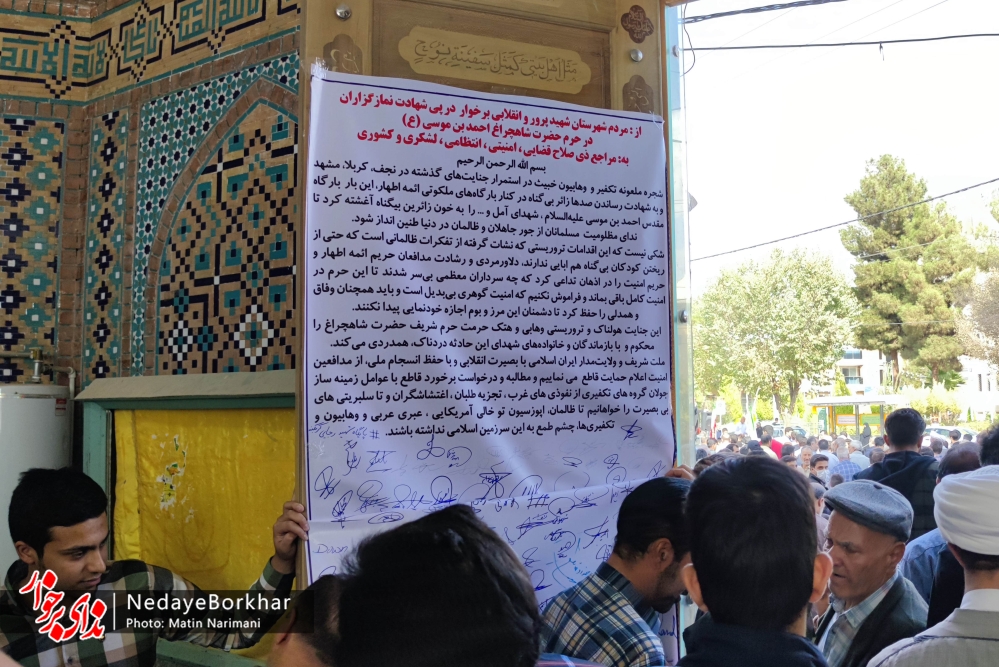 مثل اهل بیتی کمثل سفینة نوح
از : مردم شهرستان شهیدپرور و انقلابی برخوار در پی شهادت نمازگزاران
در حرم حضرت شاهچراغ احمد بن موسی (ع)
به: مراجع ذی صلاح قضایی، امنیتی ، انتظامی ، لشگری و کشوری
بسم الله الرحمن الرحیم
شجره ملعونه تکفیر و وهابیون خبیث در استمرار جنایت‌های گذشته در نجف، کربلا، مشهد
و به شهادت رساندن صدها زائر بی‌گناه در کنار بارگاه‌های ملکوتی ائمه اطهار، این بار بارگاه
مقدس احمد بن موسی علیه‌السلام ، شهدای آمل و ... را به خون زائرین بیگناه آغشته کرد تا
ندای مظلومیت مسلمانان از جور جاهلان و ظالمان در دنیا طنین انداز شود.
شکی نیست که این اقدامات تروریستی که نشات گرفته از تفکرات ظالمانی است که حتی از
ریختن خون کودکان بی‌گناه هم ابایی ندارند، دلاورمردی و رشادت مدافعان حریم ائمه اطهار و
حریم امنیت را در اذهان تداعی کرد که چه سرداران معظمی بی‌سر شدند تا این حرم در
امنیت کامل باقی بماند و فراموش نکنیم که امنیت گوهری بی‌بدیل است و باید همچنان وفاق
و همدلی را حفظ کرد تا دشمنان این مرز و بوم اجازه خودنمایی پیدا نکنند.
این جنایت هولناک و تروریستی وهابی و هتک حرمت حرم شریف حضرت شاهچراغ را
محکوم و با بازماندگان و خانواده‌های شهدای این حادثه دردناک، همدردی می‌کند.
ملت شریف و ولایت‌مدار ایران اسلامی با بصیرت انقلابی و با حفظ انسجام ملی، از مدافعین
امنیت اعلام حمایت قاطع می نماییم و مطالبه و درخواست برخورد قاطع با عوامل زمینه ساز
جولان گروه های تکفیری از نفوذی های غرب ، تجزیه طلبان ، اغتشاشگران و تا سلبریتی های
بی بصیرت را خواهانیم تا ظالمان، اپوزسیون تو خالی آمریکایی ، عبری عربی و وهابیون و
تکفیری‌ها، چشم طمع به این سرزمین اسلامی نداشته باشند.
ندای برخوار
NedayeBorkhar
Photo: Matin Narimani